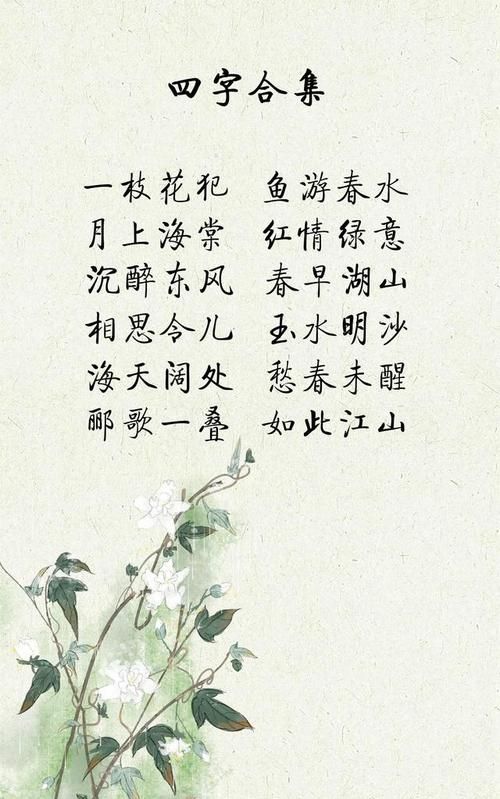 四字合集
一枝花犯 鱼游春水
月上海棠 红情绿意
沉醉东风 春早湖山
相思令儿 玉水明沙
海天阔处 愁春未醒
郦歌一叠 如此江山